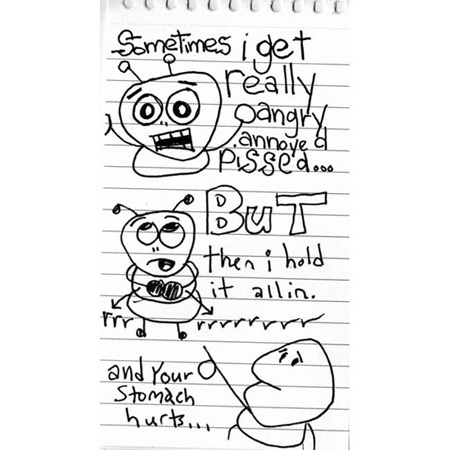 Sometimes i get
really
angry
annoyed
pissed...
BUT
then i hold
it all in.
rrr rrrrrrrr
and Your
Stomach
hurts...